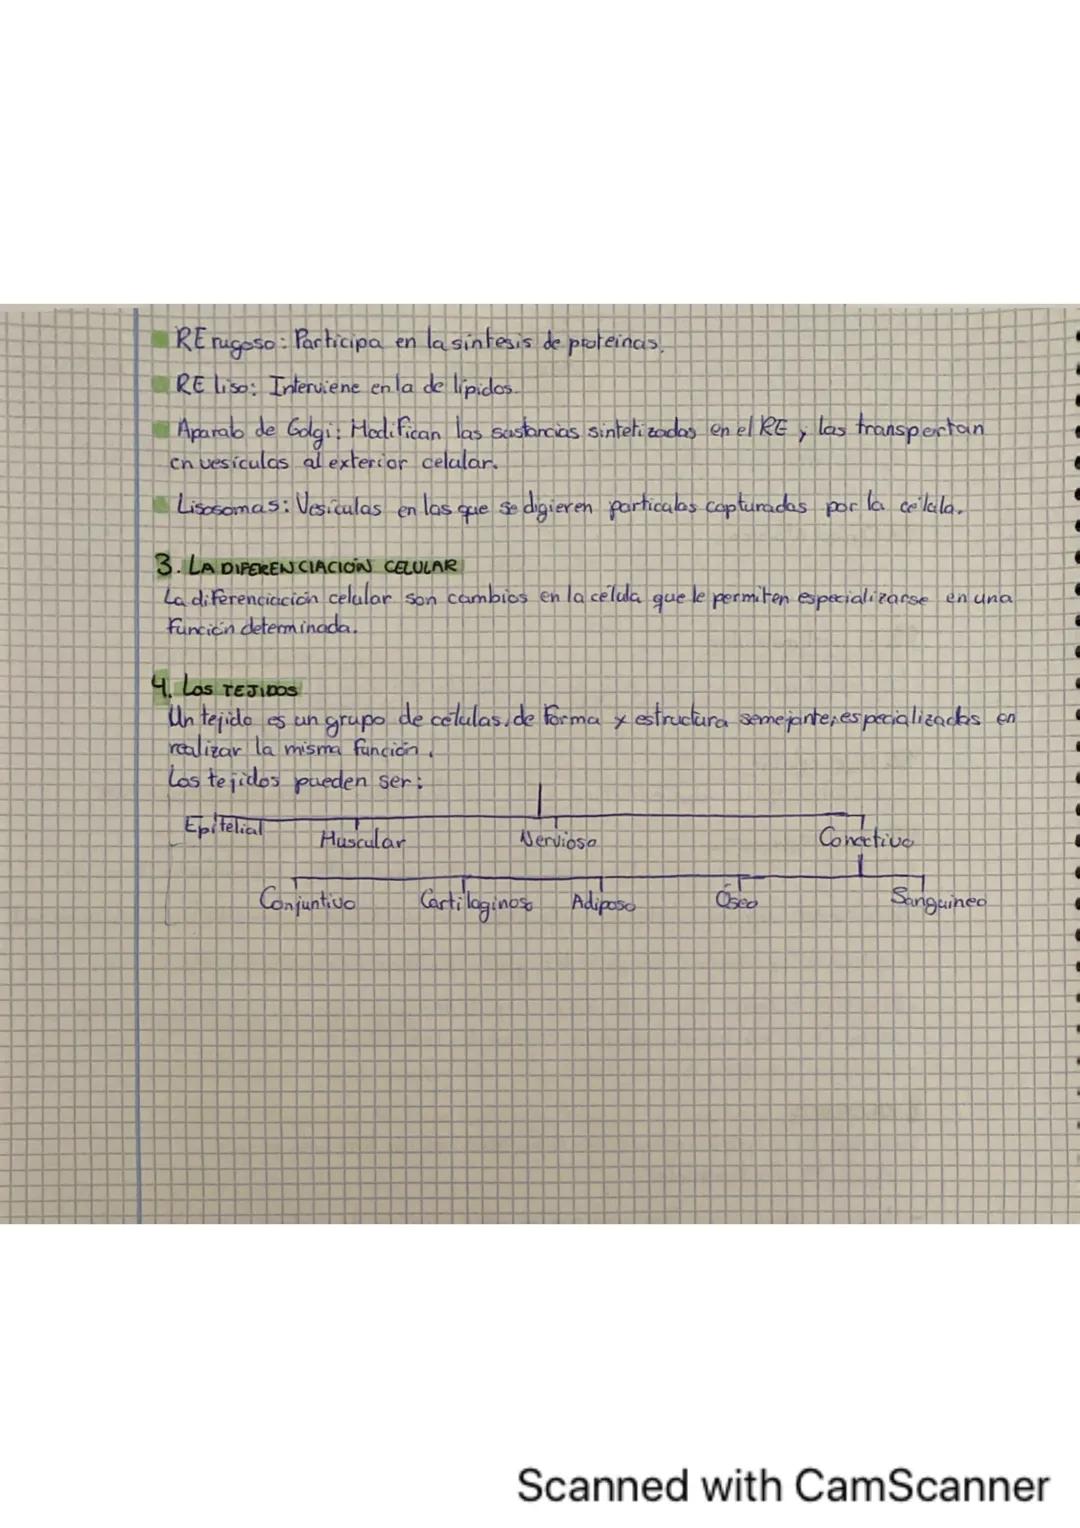 RE rugoso: Participa en la síntesis de proteínas.
RE liso: Interviene en la de lípidos.
Aparato de Golgi: Modifican las sustancias sintetizadas en el RE y las transportan
en vesículas al exterior celular.
Lisosomas: Vesículas en las que se digieren partículas capturadas por la célula.
3. LA DIFERENCIACIÓN CELULAR
La diferenciación celular son cambios en la célula que le permiten especializarse en una
función determinada.
4. Los TEJIDOS
Un tejido es un grupo de células, de forma y estructura semejante, especializadas en
realizar la misma función.
Los tejidos pueden ser:
Epitelial Muscular Nervioso Conectivo
Conjuntivo Cartilaginoso Adiposo Óseo Sanguíneo
Scanned with CamScanner